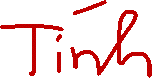 Tính